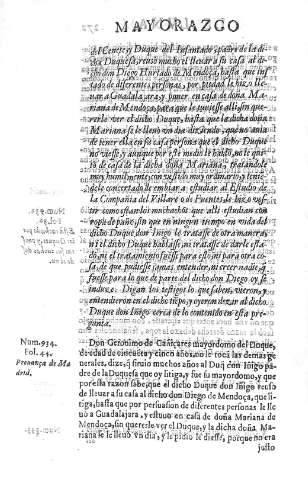 MAYORAZGO
del Cenete, y Duque del Infantado, padre de la di-
cha Duquesa, rehusò mucho el llevar a su casa al di-
cho don Diego Hurtado de Mendoça, hasta que ins-
tado de diferentes personas, por piedad le hizo lle-
uar a Guadalajara, y poner en casa de doña Ma-
riana de Mendoça, para que le tuuiesse alli sin que-
rerle ver el dicho Duque, hasta que la dicha doña
Mariana se le lleuò vn dia, diziendo, que no auia
de tener ella en su casa persona que el dicho Duque
no viesse, y aunque por este medio le hablò, no le qui-
tò de casa de la dicha doña Mariana, tratandole
muy humilmente, con vestido muy ordinario, y tenie-
dole concertado de embiar a estudiar al Estudio de
la Compañia del Villarejo de Fuentes, le hizo ves-
tir como es
los muchachos que alli estudian con
ropa de paño, sin que en ningun tiempo en vida del
dicho don Iñigo le tratasse de otra manera,
ni el dicho Duque hablasse, ni tratasse de darle esta-
do, ni el tratamiento fuesse para esto, ni para otra co-
sa, de que pudiesse jamas entender, ni creer nadie, q
fuesse para lo que de parte del dicho don Diego oy se
induze. Digan los testigos lo que saben, vieron,
entendieron en el dicho tiempo, y oyeron dezir al dicho
Duque don Iñigo cerca de lo contenido en esta pre-
gunta.
Num. 934.
Fol. 44.
Prouança de Ma
drid.
Don Geronimo de Cañiçares mayordomo del Duque,
de edad de cincuenta y cinco años, no le tocã las demas ge-
nerales, dize, q siruio muchos años al Duq̃ don Iñigo pa-
dre de la Duquesa que oy litiga, y fue su mayordomo, y que
por esta razon sabe, que al dicho Duque don Iñigo rehusò
de llamar a su casa al dicho don Diego de Mendoça, que li-
tiga, hasta que por persuasion de diferentes personas le lle-
uò a Guadalajara, y estuuo en casa de doña Mariana de
Mendoça, sin quererle ver el Duque, y la dicha doña Ma-
riana se le lleuò vn dia, y le pidio le viesse, porque no era
justo